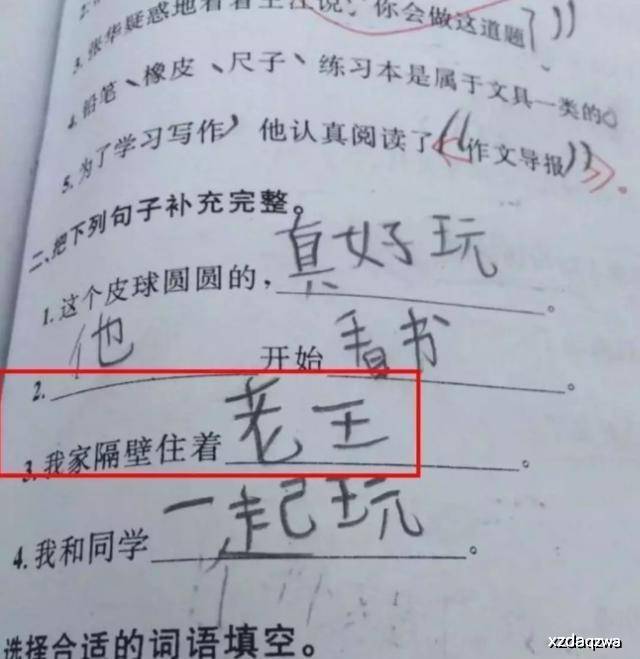 3. 张华疑惑地看着王江说:“你会做这道题?”
4. 铅笔、橡皮、尺子、练习本是属于文具一类的。
5. 为了学习写作,他认真阅读了《“作文导报”》。
二、把下列句子补充完整。
1. 这个皮球圆圆的,真好玩。
2. 他开始看书。
3. 我家隔壁住着老王。
4. 我和同学一起玩。
选择合适的词语填空。
xzdaqzwa